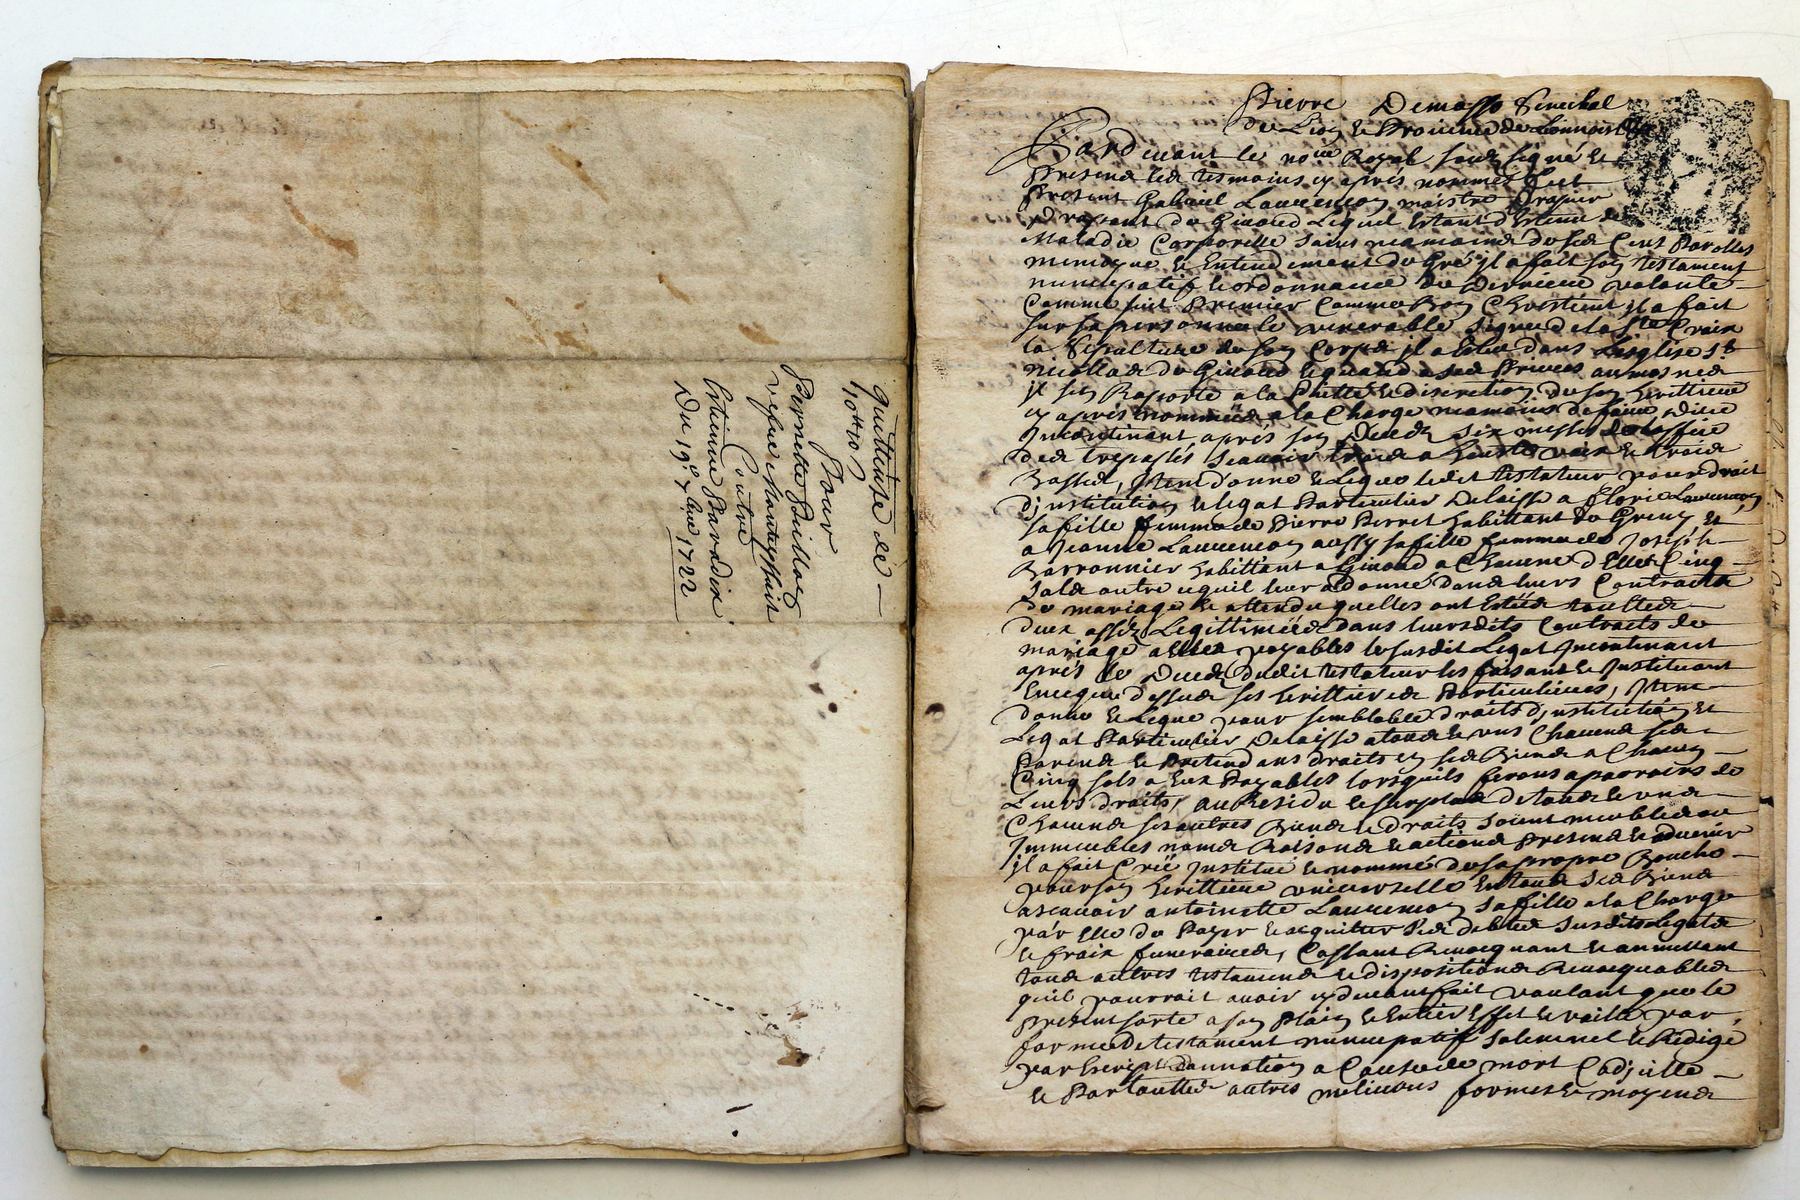 Quittance de
10tt 10s
Pour
Pernette
vefve
Contre
Estienne Paradix
Du 19e 7bre 1722
Pierre Demasso Senechal
de Lion et Province de Lionnois
Pardevant le nore Royal soubsigné et
presents les tesmoins cy après nommés fust
present Gabriel Laurencon maistre drapier
drapant de Givord lequel estant detenu de
maladie corporelle sain neamoins de ses sens parolles
memoyre et entendement de gré il a fait son testament
nuncupatif et ordonnance de derniere volonté
comme suit premier comme bon chrestien il a fait
sur sa personne le venerable signe de la Ste Croix
la sepulture de son corps il a esleu dans l'esglise St
Nicollas de Givord et quand a ses prieres aumosnes
il s'en raporte a la pietté et discretion de son herittiere
cy après nommée a la charge neamoins de faire dire
incontinant après son decedz six messes de l'office
des trepassés scavoir trois a haute voix et trois
basses, Item donne et legue ledit testateur pour droit
d'institution et legat particulier delaissé a Florie Laurencon
sa fille femme de Pierre Perret habittant de Grevy, et
a Jeanne Laurencon aussy sa fille femme de Joseph
habittant a Givord a chacune d'elles cinq
sols outre ce quil leur a donné dans leurs contracts
de mariage et attendu quelles ont estées touttes
deux assez legittimées dans leursdits contracts de
mariage a elles payables lesusdit legat incontinant
après le decedz dudit testateur les faisant et instituant
en ce que dessus ses herittieres particulieres, Item
donne et legue pour semblable droits d'institution et
legat particulier delaissé a tous et uns chacuns ses
parens et pretendans droits en ses biens a chacun
cinq sols a eux payables lorsquils feront aparroirs de
leurs droits, au residu et surplus de tous et uns
chacuns ses autres biens et droits soient meubles ou
immeubles noms raisons et actions presens et advenir
il a fait créé institué et nommé de sa propre bouche
pour son herittiere universelle en tous ses biens
ascavoir Antoinette Laurencon sa fille a la charge
par elle de payer et acquitter ses debtes susdits legats
et fraix funeraires, cassant revocquant et annullant
tous autres testamens et dispositions revocquables
quil pourroit avoir cy devant fait voulant que le
present sorte a son plain et entier effet et vaille par
forme de testament nuncupatif solemnel et redigé
par escript donnation a cause de mort codicille
et par touttes autres meilieurs formes et moyens